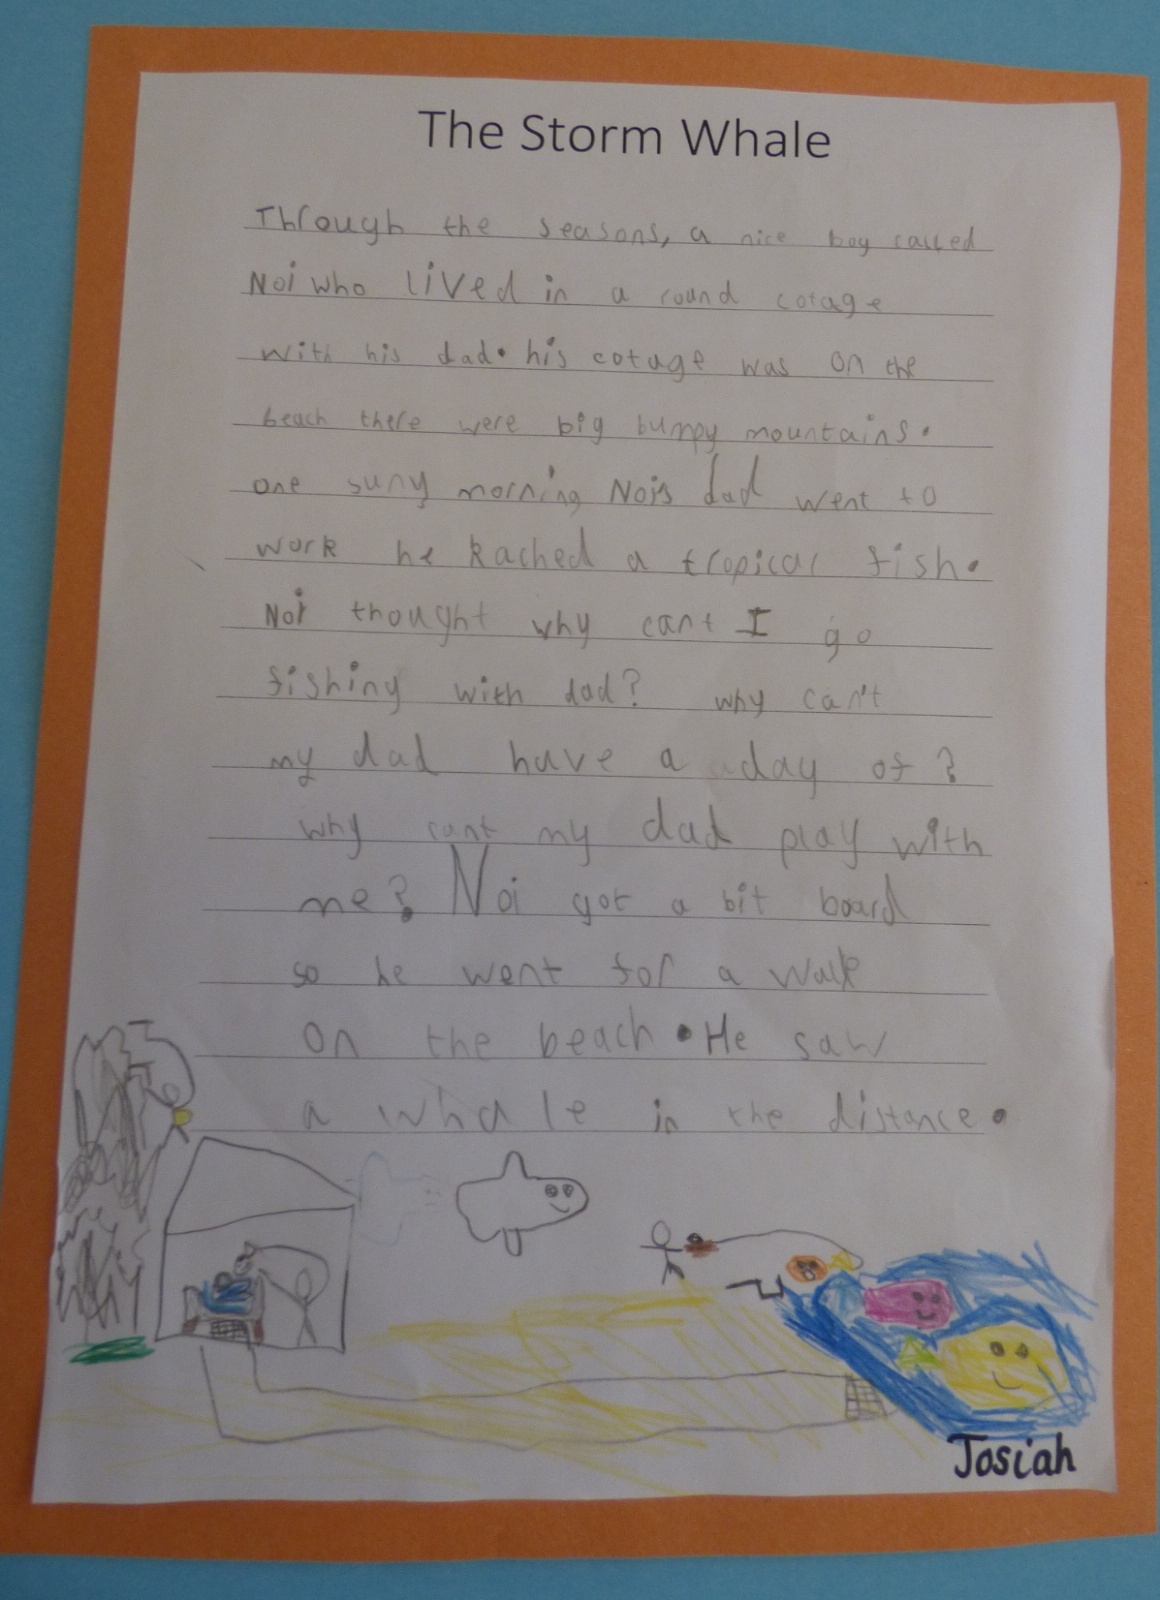 The Storm Whale
Through the seasons, a nice boy called
Noi who lived in a round cotage
with his dad. his cotage was on the
beach there were big bumpy mountains.
one suny morning Nois dad went to
work he kached a tropical fish.
Noi thought why cant I go
fishing with dad? why can't
my dad have a day of?
why cant my dad play with
me? Noi got a bit board
so he went for a walk
on the beach. He saw
a whale in the distance.
Josiah